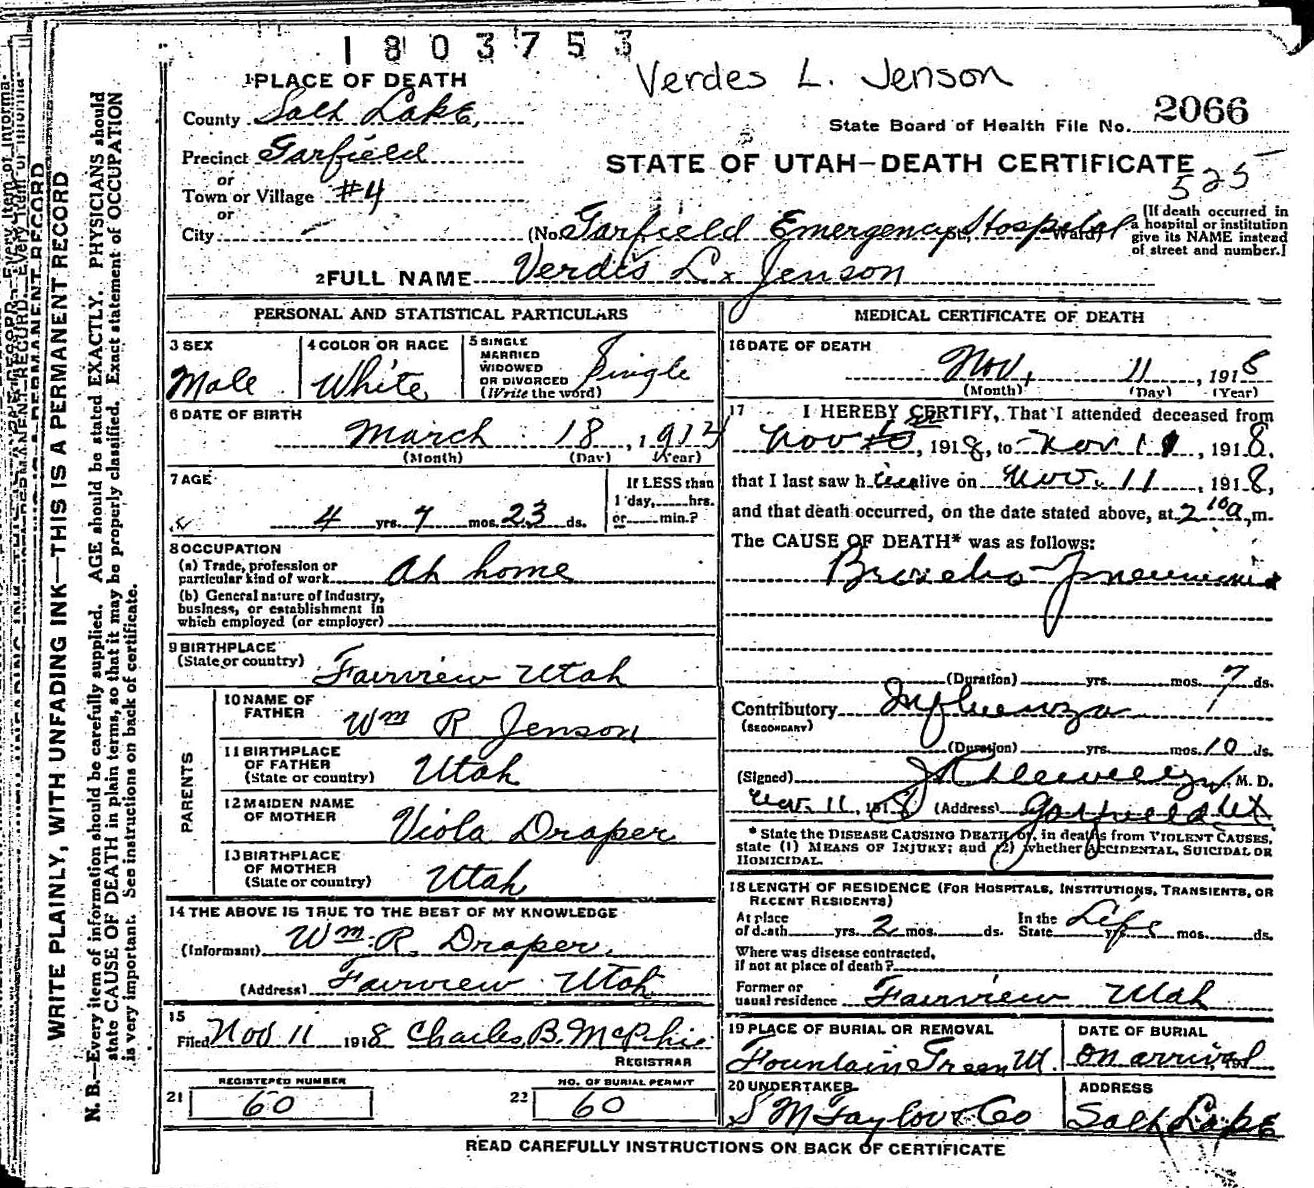 1803753
Verdes L. Jenson
1 PLACE OF DEATH
County Salt Lake
State Board of Health File No. 2066
Precinct Garfield
STATE OF UTAH—DEATH CERTIFICATE
or
525
Town or Village #4
or
City
(No. Garfield Emergency Hospital St., Ward)
[If death occurred in a hospital or institution give its NAME instead of street and number.]
2 FULL NAME Verdis L. Jenson
PERSONAL AND STATISTICAL PARTICULARS
3 SEX
Male
4 COLOR OR RACE
White
5 SINGLE
MARRIED
WIDOWED
OR DIVORCED
(Write the word)
Single
6 DATE OF BIRTH
March 18, 1914
(Month) (Day) (Year)
7 AGE
4 yrs. 7 mos. 23 ds.
If LESS than
1 day, hrs.
or min.?
8 OCCUPATION
(a) Trade, profession or
particular kind of work At home
(b) General nature of Industry,
business, or establishment in
which employed (or employer)
9 BIRTHPLACE
(State or country) Fairview Utah
PARENTS
10 NAME OF
FATHER Wm R Jenson
11 BIRTHPLACE
OF FATHER
(State or country) Utah
12 MAIDEN NAME
OF MOTHER Viola Draper
13 BIRTHPLACE
OF MOTHER
(State or country) Utah
14 THE ABOVE IS TRUE TO THE BEST OF MY KNOWLEDGE
(Informant) Wm. R. Draper
(Address) Fairview Utah
15
Filed Nov 11 1918 Charles B. McPhie
REGISTRAR
REGISTERED NUMBER
21 60
NO. OF BURIAL PERMIT
22 60
MEDICAL CERTIFICATE OF DEATH
16 DATE OF DEATH
Nov. 11, 1918
(Month) (Day) (Year)
17 I HEREBY CERTIFY, That I attended deceased from
Nov, 1918, to Nov 11, 1918.
that I last saw h alive on Nov. 11, 1918,
and that death occurred, on the date stated above, at 2 10 a, m.
The CAUSE OF DEATH* was as follows:
Broncho-Pneumonia
(Duration) yrs. mos. 7 ds.
Contributory Influenza
(SECONDARY)
(Duration) yrs. mos. 10 ds.
(Signed) M. D.
Nov. 11, 1918 (Address) Garfield Ut
* State the DISEASE CAUSING DEATH, or, in deaths from VIOLENT CAUSES,
state (1) MEANS OF INJURY; and (2) whether ACCIDENTAL, SUICIDAL OR
HOMICIDAL.
18 LENGTH OF RESIDENCE (FOR HOSPITALS, INSTITUTIONS, TRANSIENTS, OR
RECENT RESIDENTS)
At place
of death yrs. 2 mos. ds.
In the
State Life yrs. mos. ds.
Where was disease contracted,
if not at place of death?
Former or
usual residence Fairview Utah
19 PLACE OF BURIAL OR REMOVAL
Fountain Green Ut.
DATE OF BURIAL
On arrival, 191
20 UNDERTAKER
S M Taylor & Co
ADDRESS
Salt Lake
READ CAREFULLY INSTRUCTIONS ON BACK OF CERTIFICATE
WRITE PLAINLY, WITH UNFADING INK—THIS IS A PERMANENT RECORD
N. B.—Every item of information should be carefully supplied. AGE should be stated EXACTLY. PHYSICIANS should
state CAUSE OF DEATH in plain terms, so that it may be properly classified. Exact statement of OCCUPATION
is very important. See instructions on back of certificate.